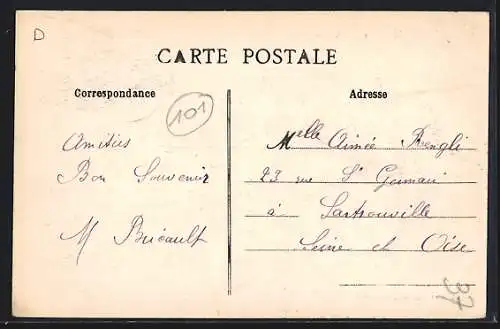 D
CARTE POSTALE
Correspondance
101
Adresse
Amitiés
Bon Souvenir
M Bricault
Melle Aimée
23 rue St Germain
à Sartrouville
Seine et Oise
37